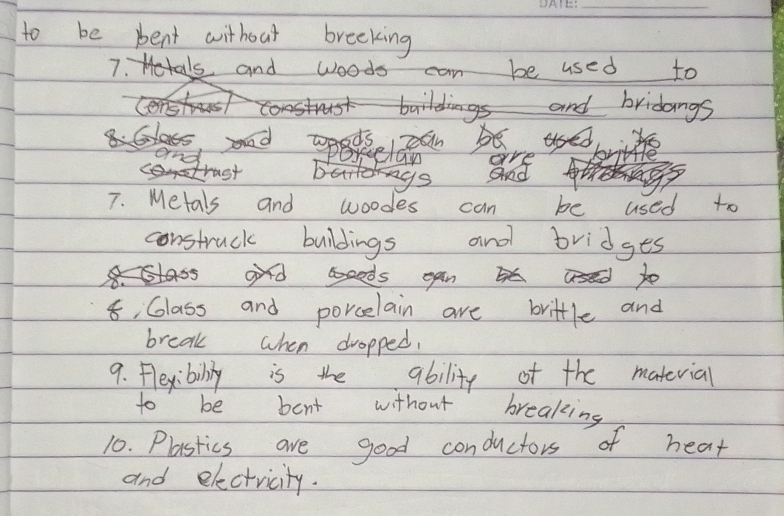 DATE:
to be bent without breeking
7. Metals and woods can be used to
construst construst buildings and bridangs
8. Glass and woods can be used to
and porcelain are brittle
construst buildings and
7. Metals and woodes can be used to
construck buildings and bridges
8. Glass and woods can be used to
8. Glass and porcelain are brittle and
break when dropped.
9. Flexibility is the ability of the material
to be bent without breaking
10. Plastics are good conductors of heat
and electricity.